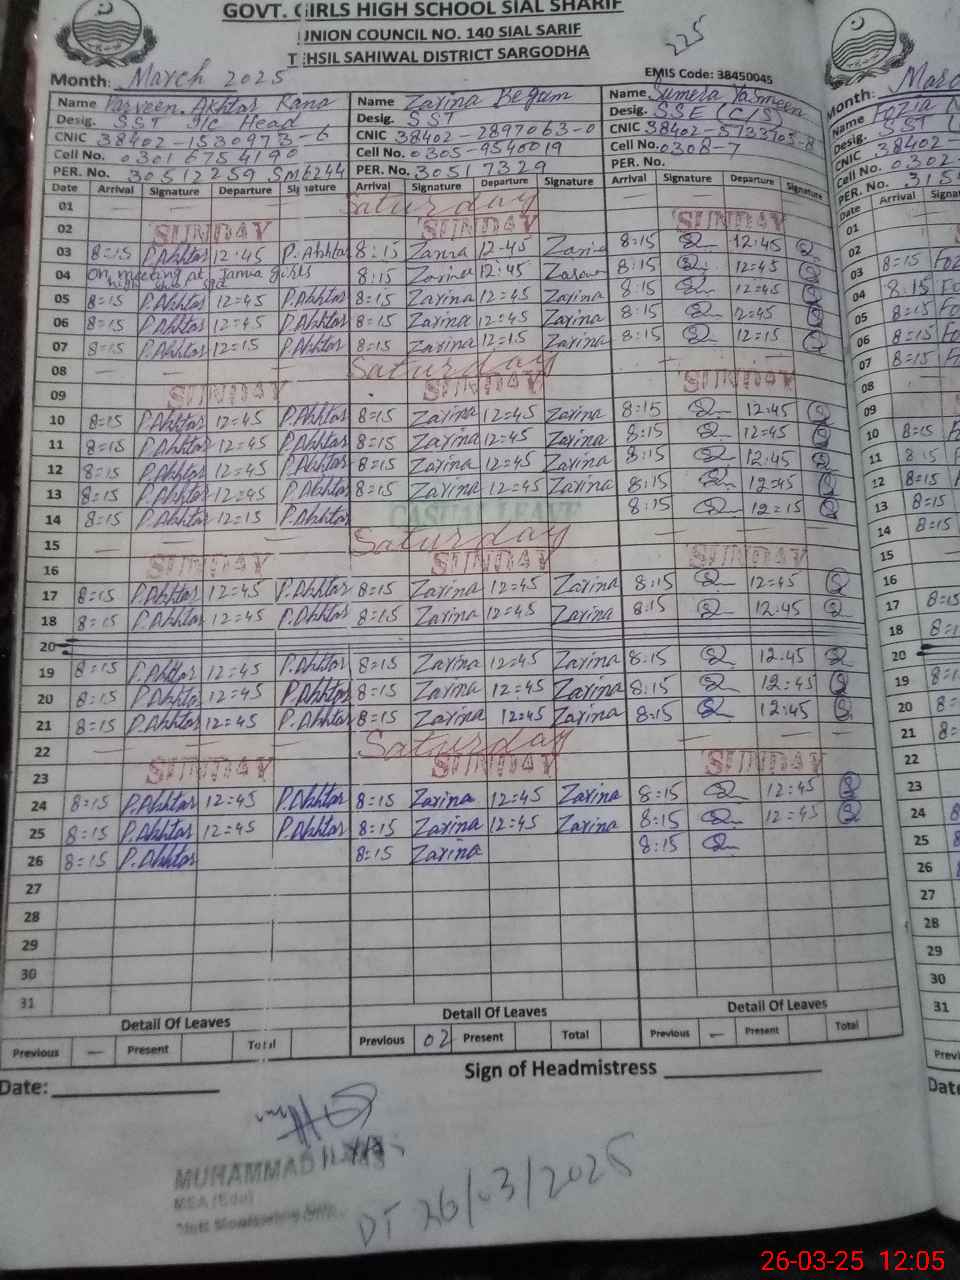 GOVT. GIRLS HIGH SCHOOL SIAL SHARIF
UNION COUNCIL NO. 140 SIAL SARIF
TEHSIL SAHIWAL DISTRICT SARGODHA
225
Month: March 2025
EMIS Code: 38450045
Name Parveen Akhtar Rana Name Zarina Begum Name Sumera Yasmeen
Desig. SST I/c Head Desig. SST Desig. SSE (C/S)
CNIC 38402-1530973-6 CNIC 38402-2897063-0 CNIC 38402-5733705-8
Cell No. 0301 6754190 Cell No. 0305-9540019 Cell No. 0308-7
PER. No. 30512259 SM6244 PER. No. 30517329 PER. No.
Date Arrival Signature Departure Signature Arrival Signature Departure Signature Arrival Signature Departure Signature
01 — — Saturday — —
02 SUNDAY SUNDAY SUNDAY
03 8:15 P.Akhtar 12:45 P.Akhtar 8:15 Zarina 12:45 Zarina 8:15 12:45
04 On meeting at Jamia girls high 8:15 Zarina 12:45 8:15 12=45
05 8=15 P.Akhtar 12=45 P.Akhtar 8=15 Zarina 12=45 Zarina 8:15 12=45
06 8=15 P.Akhtar 12=45 P.Akhtar 8=15 Zarina 12=45 Zarina 8:15 12=45
07 8=15 P.Akhtar 12=15 P.Akhtar 8=15 Zarina 12=15 Zarina 8:15 12=15
08 — — Saturday — —
09 SUNDAY SUNDAY SUNDAY
10 8=15 P.Akhtar 12=45 P.Akhtar 8=15 Zarina 12=45 Zarina 8:15 12:45
11 8=15 P.Akhtar 12=45 P.Akhtar 8=15 Zarina 12=45 Zarina 8:15 12=45
12 8=15 P.Akhtar 12=45 P.Akhtar 8=15 Zarina 12=45 Zarina 8:15 12:45
13 8=15 P.Akhtar 12=45 P.Akhtar 8=15 Zarina 12=45 Zarina 8:15 12=45
14 8=15 P.Akhtar 12=15 P.Akhtar CASUAL LEAVE 8:15 12=15
15 — — Saturday — —
16 SUNDAY SUNDAY SUNDAY
17 8=15 P.Akhtar 12=45 P.Akhtar 8=15 Zarina 12=45 Zarina 8:15 12=45
18 8=15 P.Akhtar 12=45 P.Akhtar 8=15 Zarina 12=45 Zarina 8:15 12:45
20
19 8=15 P.Akhtar 12=45 P.Akhtar 8=15 Zarina 12=45 Zarina 8:15 12:45
20 8=15 P.Akhtar 12=45 P.Akhtar 8=15 Zarina 12=45 Zarina 8:15 12:45
21 8=15 P.Akhtar 12=45 P.Akhtar 8=15 Zarina 12=45 Zarina 8:15 12:45
22 — — Saturday — —
23 SUNDAY SUNDAY SUNDAY
24 8=15 P.Akhtar 12=45 P.Akhtar 8=15 Zarina 12=45 Zarina 8:15 12:45
25 8=15 P.Akhtar 12=45 P.Akhtar 8=15 Zarina 12=45 Zarina 8:15 12=45
26 8=15 P.Akhtar 8:15 Zarina 8:15
27
28
29
30
31
Detail Of Leaves Detail Of Leaves Detail Of Leaves
Previous — Present Total Previous 02 Present Total Previous — Present Total
Date: Sign of Headmistress
MUHAMMAD ILYAS
MEA (Edu)
DT 26/03/2025
Month: Marc
Name Fozia
Desig. SST
CNIC 38402-
Cell No. 0302-
PER. No. 315
Date Arrival
01
02
03 8=15
04 8:15
05 8=15
06 8=15
07 8=15
08
09
10 8=15
11 8:15
12 8=15
13 8=15
14 8=15
15
16
17 8=15
18
20
19
20
21
22
23
24
25
26
27
28
29
30
31
26-03-25 12:05